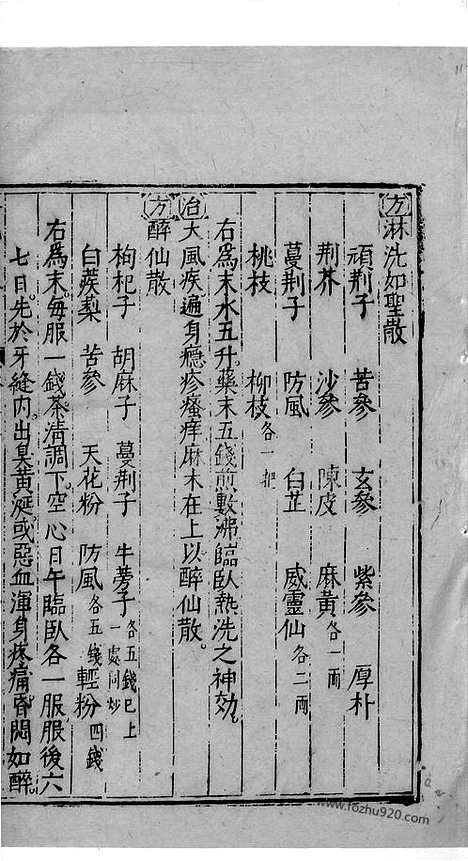 方淋洗如聖散
頑荆子　苦參　玄參　紫參　厚朴
荆芥　沙參　陳皮　麻黃各一兩
蔓荆子　防風　白芷　威靈仙各二兩
桃枝　柳枝各一把
右爲末水五升藥末五錢煎數沸臨臥熱洗之神効
治大風疾遍身癮疹瘙痒麻木在上以醉仙散。
方醉仙散
枸杞子　胡麻子　蔓荆子　牛蒡子各五錢已上一處同炒
白蒺梨　苦參　天花粉　防風各五錢輕粉四錢
右爲末。每服一錢茶清調下空心日午臨臥各一服服後六
七日。先於牙縫內。出臭黃涎。或惡血渾身疼痛昏悶如醉
www.fozhu920.com